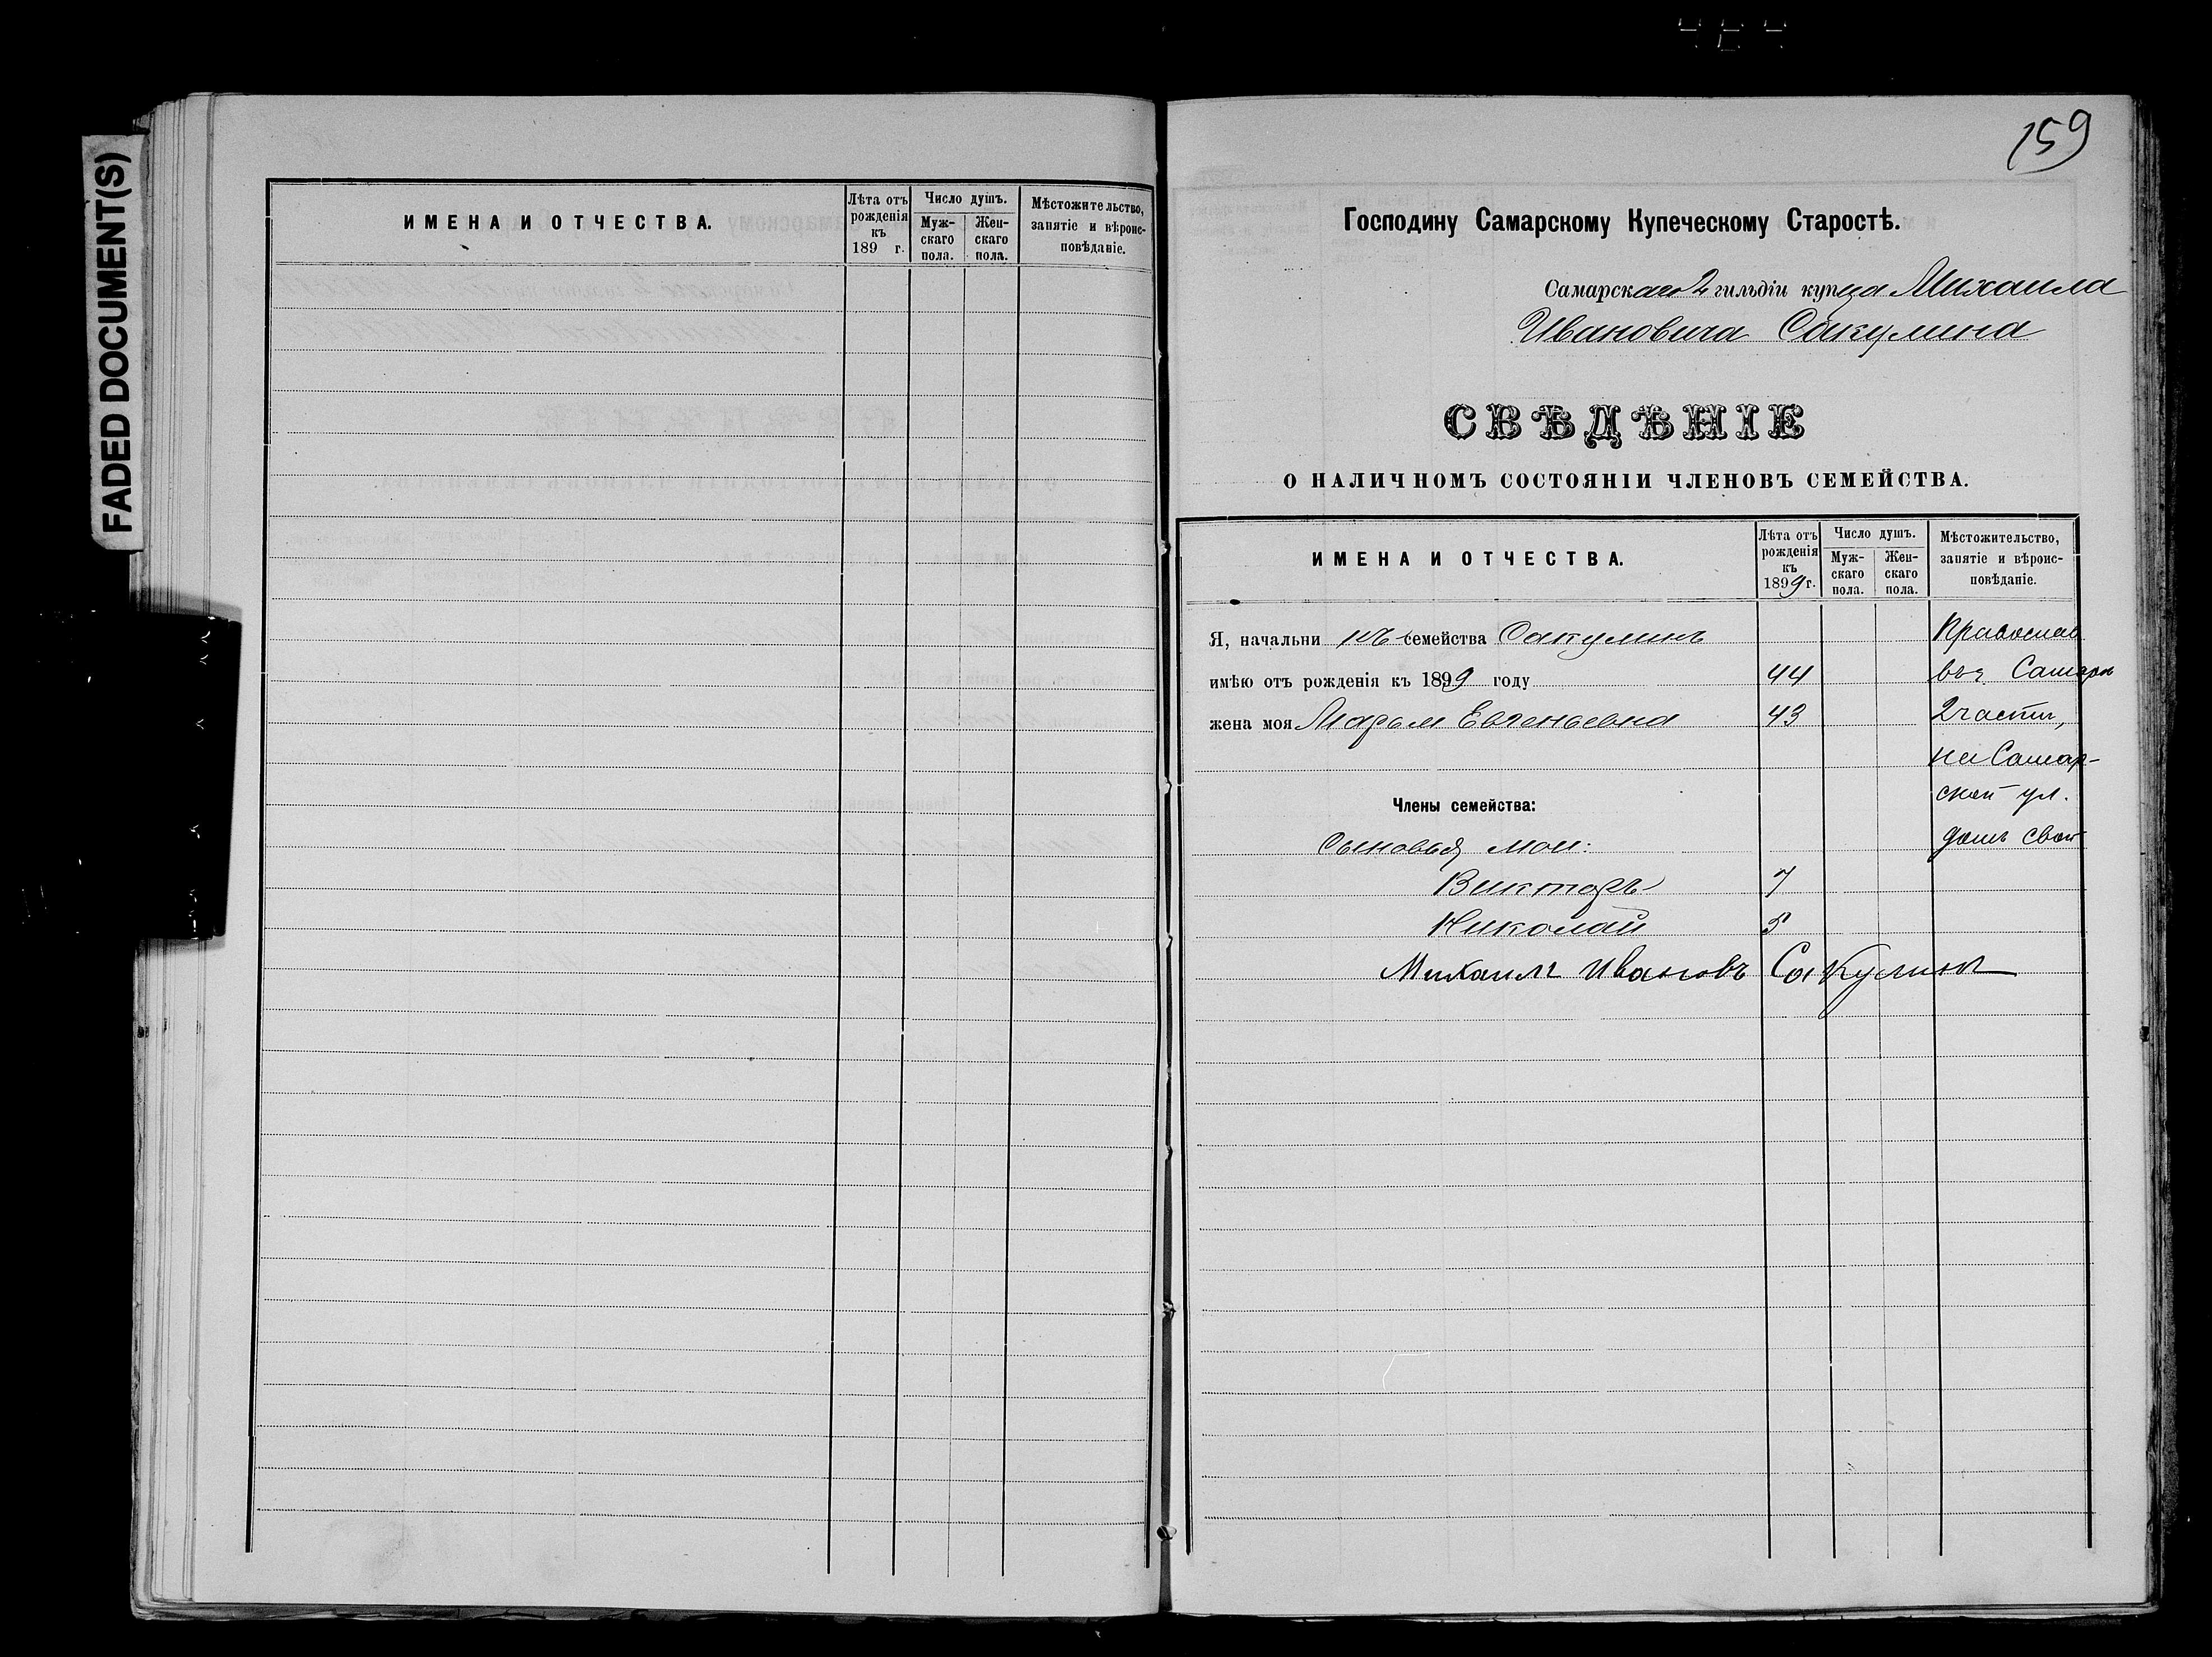 FADED DOCUMENT(S)
ИМЕНА И ОТЧЕСТВА.
Лѣта отъ рожденія къ 189 г.
Число душъ.
Муж- скаго пола.
Жен- скаго пола.
Мѣстожительство, занятіе и вѣроис- повѣданіе.
159
Господину Самарскому Купеческому Старостѣ.
Самарскаго 2 гильдіи купца Михаила
Ивановича Сакулина
СВѢДѢНІЕ
О НАЛИЧНОМЪ СОСТОЯНІИ ЧЛЕНОВЪ СЕМЕЙСТВА.
ИМЕНА И ОТЧЕСТВА.
Лѣта отъ рожденія къ 1899 г.
Число душъ.
Муж- скаго пола.
Жен- скаго пола.
Мѣстожительство, занятіе и вѣроис- повѣданіе.
Я, начальникъ семейства Сакулинъ Православ
имѣю отъ рожденія къ 1899 году 44 Самара
жена моя Марья Евгеньевна 43 2 части,
на Самар-
ской ул.
Члены семейства:
Сыновья мои: домъ свой
Викторъ 7
Николай 5
Михаилъ Ивановъ Сакулинъ